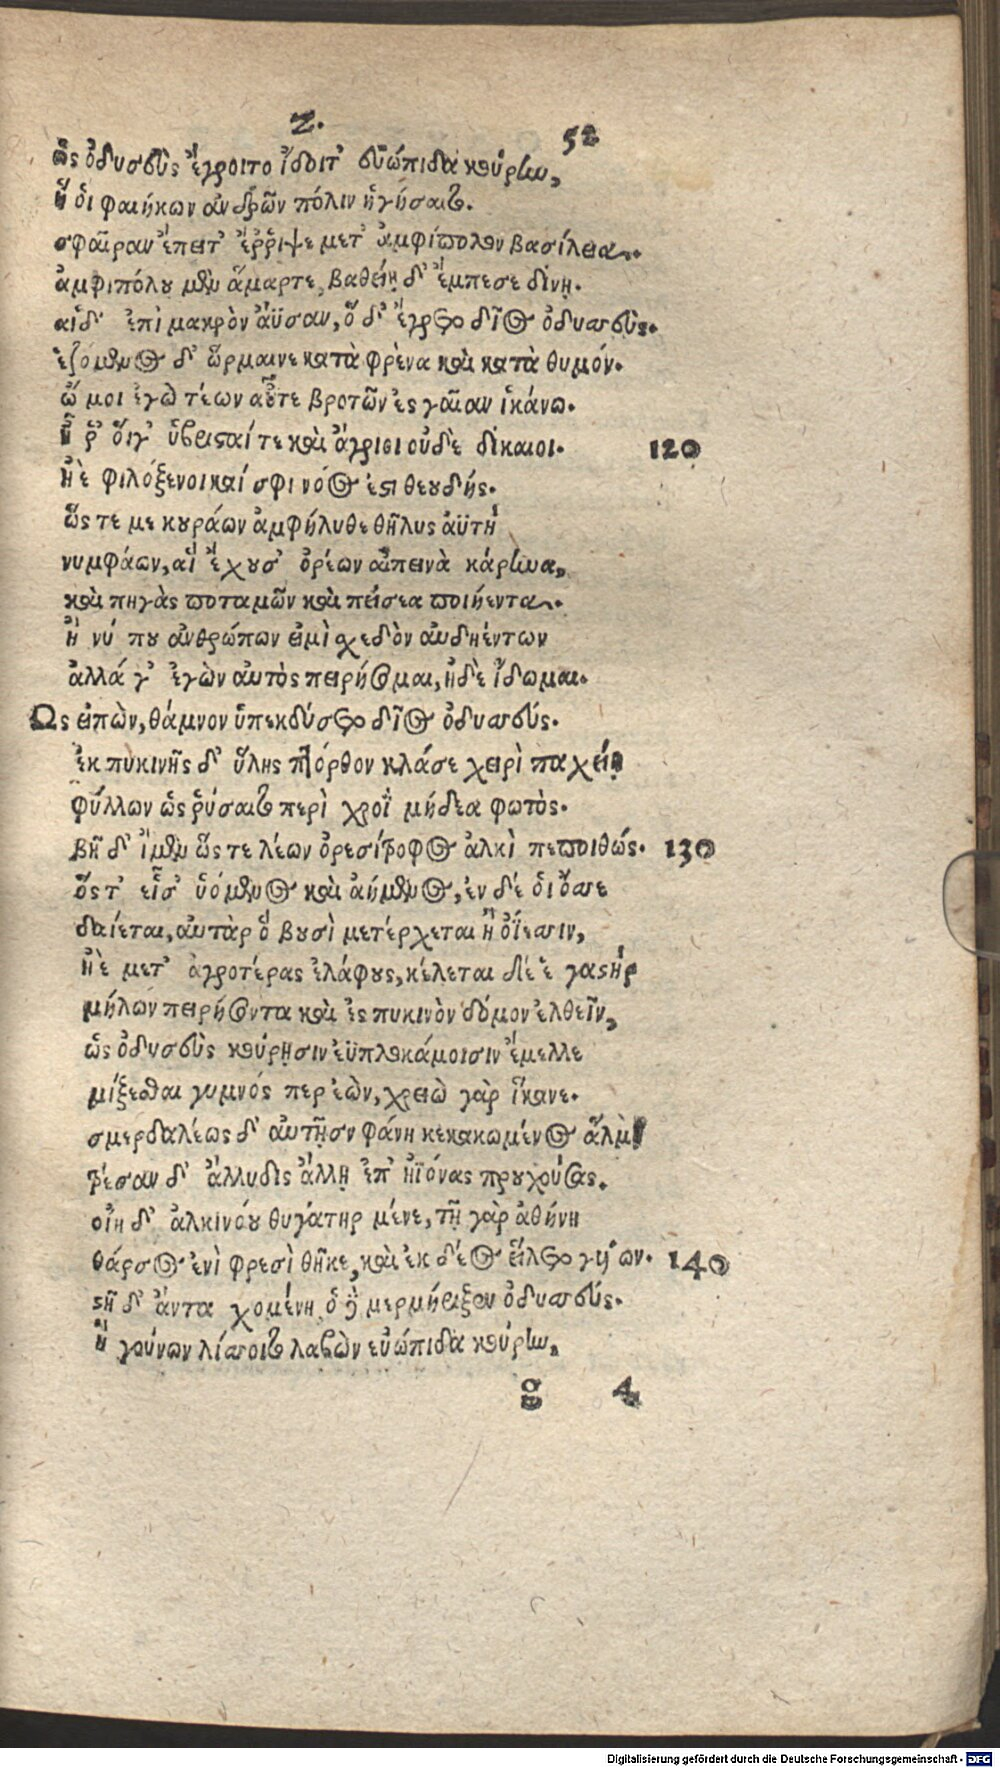 Ζ. 52
ὣς ὀδυσεὺς ἔγροιτο ἴδοιτ᾽ εὐώπιδα κούρην,
ἥ οἱ φαιήκων ἀνδρῶν πόλιν ἡγήσαιτο.
σφαῖραν ἔπειτ᾽ ἔῤῥιψε μετ᾽ ἀμφίπολον βασίλεια.
ἀμφιπόλου μὲν ἅμαρτε, βαθείῃ δ᾽ ἔμπεσε δίνῃ.
αἱ δ᾽ ἐπὶ μακρὸν ἄϋσαν, ὅ δ᾽ ἔγρετο δῖος ὀδυσσεύς.
ἑζόμενος δ᾽ ὥρμαινε κατὰ φρένα καὶ κατὰ θυμόν.
ὤ μοι ἐγὼ τέων αὖτε βροτῶν ἐς γαῖαν ἱκάνω.
ἦ ῥ᾽ οἵγ᾽ ὑβρισταί τε καὶ ἄγριοι οὐδὲ δίκαιοι. 120
ἠὲ φιλόξενοι καί σφι νόος ἐστὶ θεουδής.
ὥς τε με κουράων ἀμφήλυθε θῆλυς ἀϋτὴ
νυμφάων, αἳ ἔχουσ᾽ ὀρέων αἰπεινὰ κάρηνα,
καὶ πηγὰς ποταμῶν καὶ πείσεα ποιήεντα.
ἦ νύ που ἀνθρώπων εἰμὶ σχεδὸν αὐδηέντων
ἀλλά γ᾽ ἐγὼν αὐτὸς πειρήσομαι, ἠδὲ ἴδωμαι.
Ὣς εἰπὼν, θάμνον ὑπεκδύσετο δῖος ὀδυσσεύς.
ἐκ πυκινῆς δ᾽ ὕλης πτόρθον κλάσε χειρὶ παχείῃ
φύλλων ὡς ῥύσαιτο περὶ χροῒ μήδεα φωτὸς.
βῆ δ᾽ ἴμεν ὥς τε λέων ὀρεσίτροφος ἀλκὶ πεποιθώς. 130
ὅς τ᾽ εἶσ᾽ ὑόμενος καὶ ἀήμενος, ἐν δέ οἱ ὄσσε
δαίεται, αὐτὰρ ὃ βουσὶ μετέρχεται ἢ ὀΐεσσιν,
ἠὲ μετ᾽ ἀγροτέρας ἐλάφους, κέλεται δέ ἑ γαστὴρ
μήλων πειρήσοντα καὶ ἐς πυκινὸν δόμον ἐλθεῖν,
ὣς ὀδυσεὺς κούρῃσιν ἐϋπλοκάμοισιν ἔμελλε
μίξεσθαι γυμνός περ ἐὼν, χρειὼ γὰρ ἵκανε.
σμερδαλέως δ᾽ αὐτῇσιν φάνη κεκακωμένος ἅλμῃ
τρέσαν δ᾽ ἄλλυδις ἄλλῃ ἐπ᾽ ἠϊόνας προὐχούσας.
οἴη δ᾽ ἀλκινόου θυγάτηρ μένε, τῇ γὰρ ἀθήνη
θάρσος ἐνὶ φρεσὶ θῆκε, καὶ ἐκ δέος εἵλετο γυίων. 140
στῆ δ᾽ ἄντα σχομένη, ὁ δὲ μερμήριξεν ὀδυσσεύς.
ἢ γούνων λίσσοιτο λαβὼν εὐώπιδα κούρην,
g 4
Digitalisierung gefördert durch die Deutsche Forschungsgemeinschaft - DFG